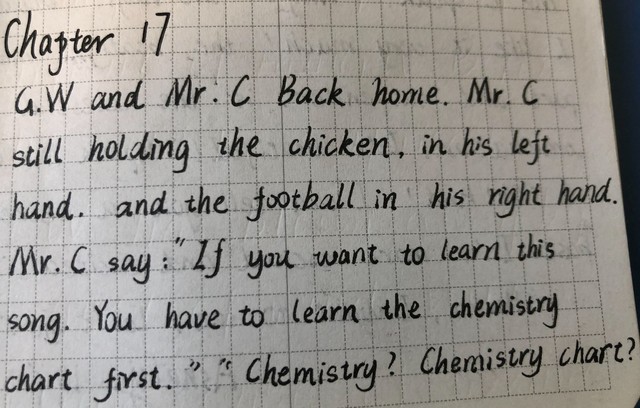 Chapter 17
G.W and Mr. C Back home. Mr. C
still holding the chicken, in his left
hand. and the football in his right hand.
Mr. C say: "If you want to learn this
song. You have to learn the chemistry
chart first." "Chemistry? Chemistry chart?